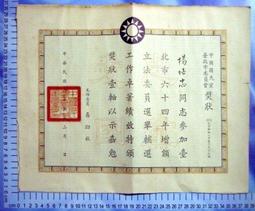 中國國民黨
臺北市委員會
獎狀
楊㳓忠同志參加臺
北市六十四年增額
立法委員選舉輔選
工作卓著績效特頒
獎狀壹軸以示嘉勉
主任委員
中華民國
月 日